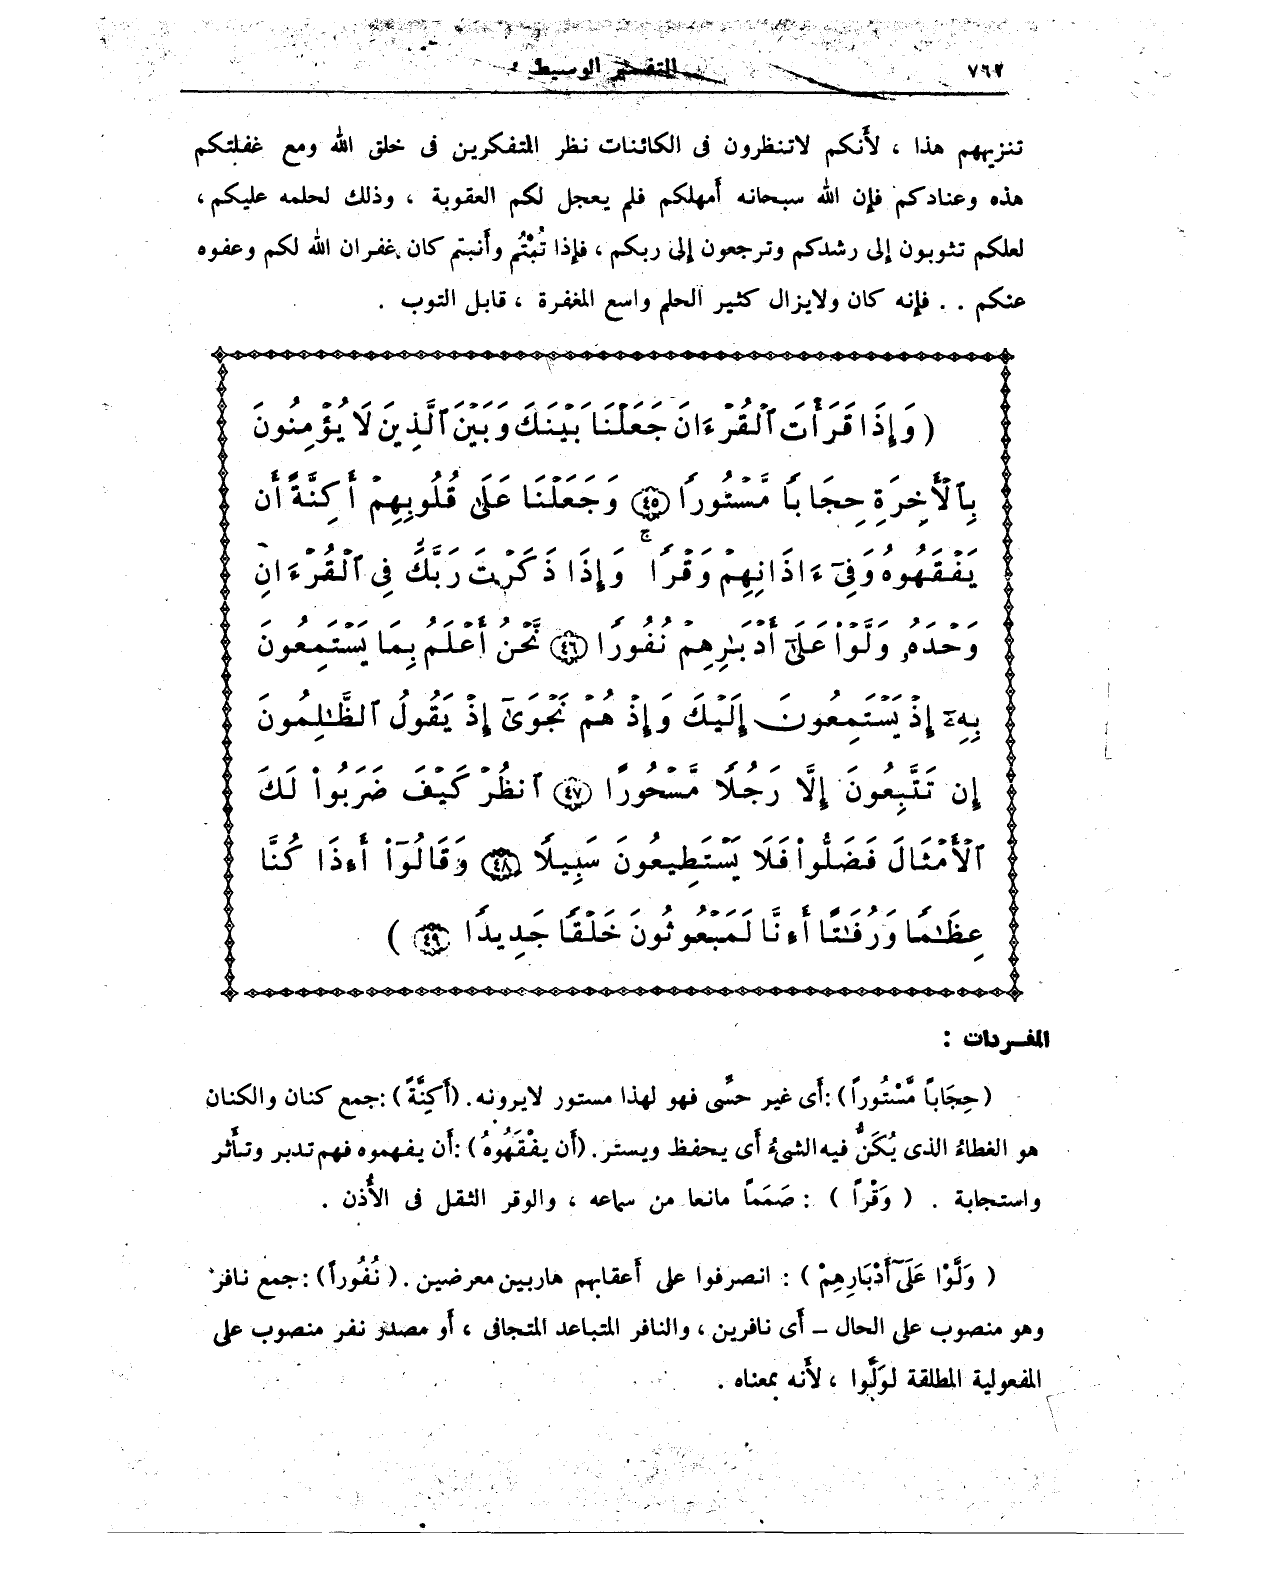 ٧٦٢ التفسير الوسيط
تنزيههم هذا ، لأَنكم لاتنظرون فى الكائنات نظر المتفكرين فى خلق الله ومع غفلتكم
هذه وعنادكم فإن الله سبحانه أمهلكم فلم يعجل لكم العقوبة ، وذلك لحلمه عليكم ،
لعلكم تثوبون إلى رشدكم وترجعون إلى ربكم ، فإذا تُبْتُم وأنبتم كان غفران الله لكم وعفوه
عنكم . . فإنه كان ولايزال كثير الحلم واسع المغفرة ، قابل التوب .
( وَإِذَا قَرَأْتَ ٱلْقُرْءَانَ جَعَلْنَا بَيْنَكَ وَبَيْنَ ٱلَّذِينَ لَا يُؤْمِنُونَ
بِٱلْأَخِرَةِ حِجَابًا مَّسْتُورًا ٤٥ وَجَعَلْنَا عَلَىٰ قُلُوبِهِمْ أَكِنَّةً أَن
يَفْقَهُوهُ وَفِىٓ ءَاذَانِهِمْ وَقْرًا ۚ وَإِذَا ذَكَرْتَ رَبَّكَ فِى ٱلْقُرْءَانِ
وَحْدَهُۥ وَلَّوْا۟ عَلَىٰٓ أَدْبَـٰرِهِمْ نُفُورًا ٤٦ نَّحْنُ أَعْلَمُ بِمَا يَسْتَمِعُونَ
بِهِۦٓ إِذْ يَسْتَمِعُونَ إِلَيْكَ وَإِذْ هُمْ نَجْوَىٰٓ إِذْ يَقُولُ ٱلظَّـٰلِمُونَ
إِن تَتَّبِعُونَ إِلَّا رَجُلًا مَّسْحُورًا ٤٧ ٱنظُرْ كَيْفَ ضَرَبُوا۟ لَكَ
ٱلْأَمْثَالَ فَضَلُّوا۟ فَلَا يَسْتَطِيعُونَ سَبِيلًا ٤٨ وَقَالُوٓا۟ أَءِذَا كُنَّا
عِظَـٰمًا وَرُفَـٰتًا أَءِنَّا لَمَبْعُوثُونَ خَلْقًا جَدِيدًا ٤٩ )
المفـردات :
( حِجَاباً مَّسْتُوراً ) : أَى غير حسَّى فهو لهذا مستور لايرونه . ( أَكِنَّةً ) : جمع كنان والكنان
هو الغطاءُ الذى يُكَنُّ فيه الشىءُ أى يحفظ ويستر . ( أَن يَفْقَهُوهُ ) : أن يفهموه فهم تدبر وتأثر
واستجابة . ( وَقْراً ) : صَمَماً مانعا من سماعه ، والوقر الثقل فى الأُذن .
( وَلَّوْا عَلَىٓ أَدْبَارِهِمْ ) : انصرفوا على أعقابهم هاربين معرضين . ( نُفُوراً ) : جمع نافر
وهو منصوب على الحال – أى نافرين ، والنافر المتباعد المتجافى ، أو مصدر نفر منصوب على
المفعولية المطلقة لوَلَّوا ، لأَنه بمعناه .